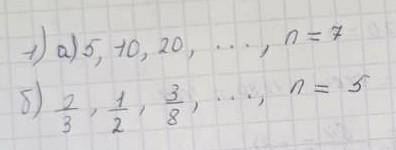 1) а) 5, 10, 20, ..., n = 7
б) 2/3, 1/2, 3/8, ..., n = 5